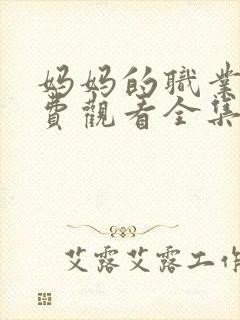 妈妈的職業
費觀看全集
艾露艾露工作